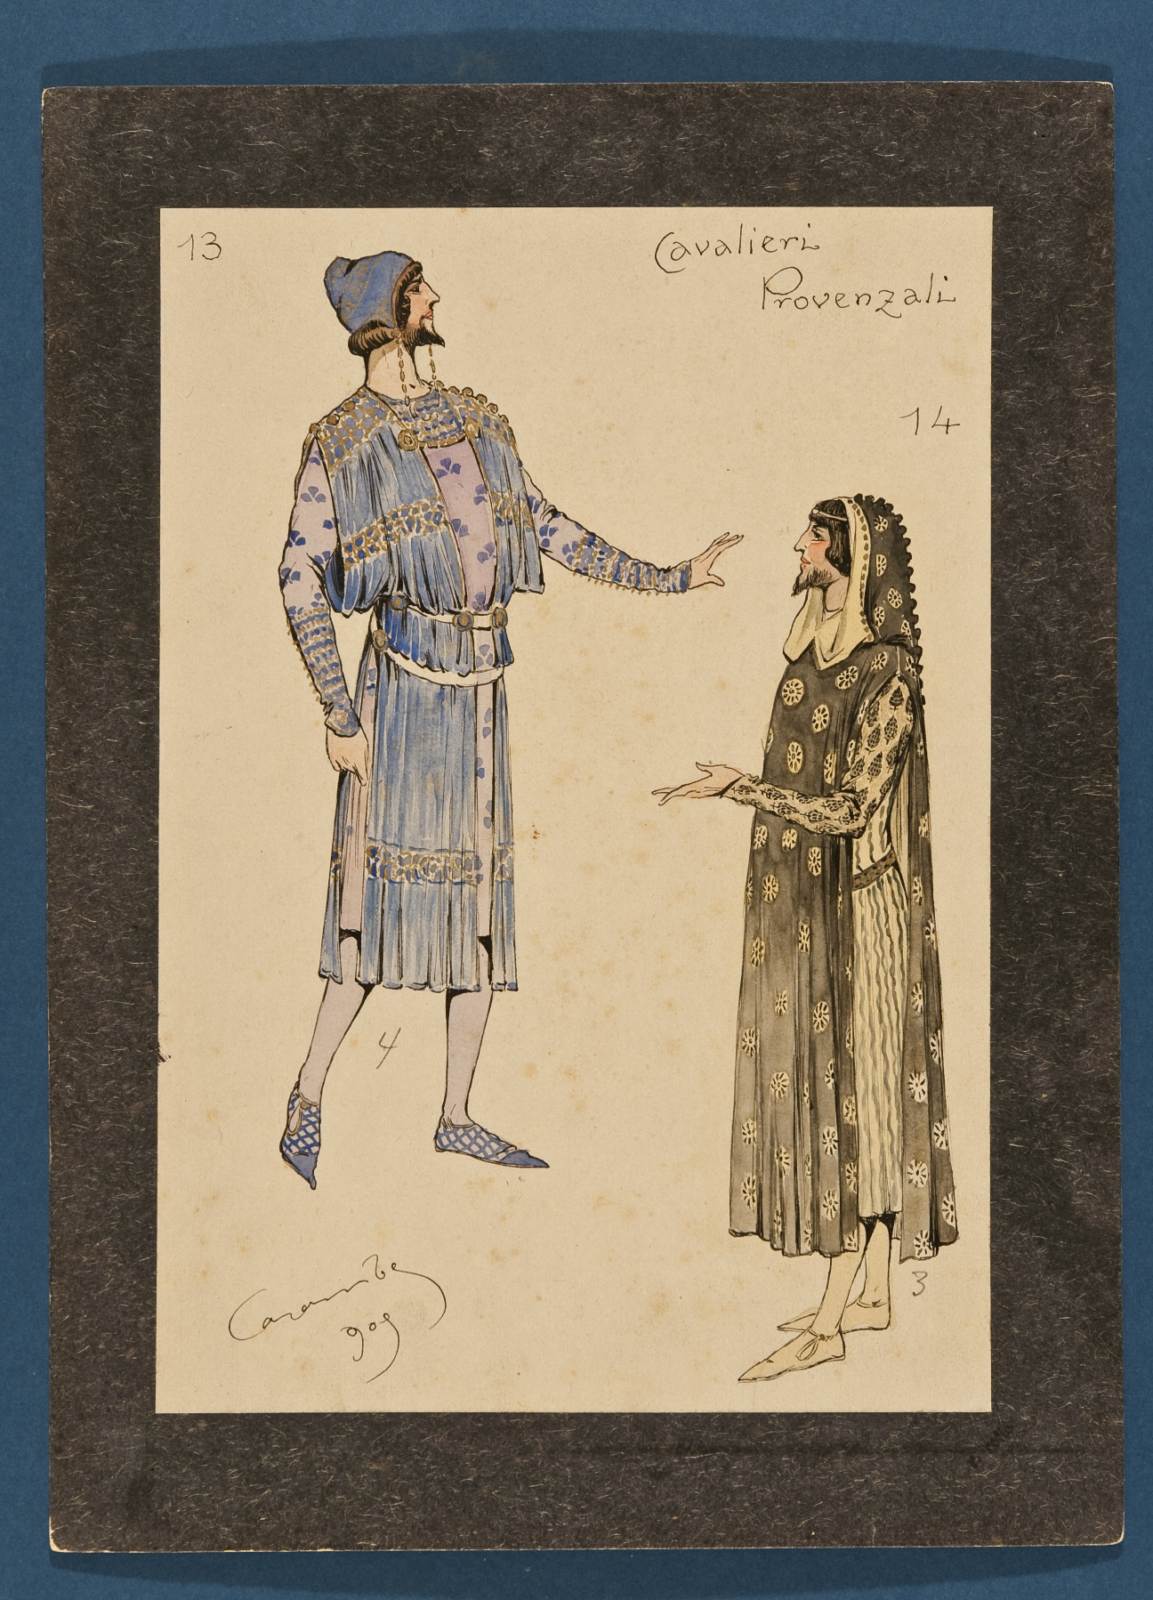 13
Cavalieri
Provenzali
14
4
3
Caramba
909